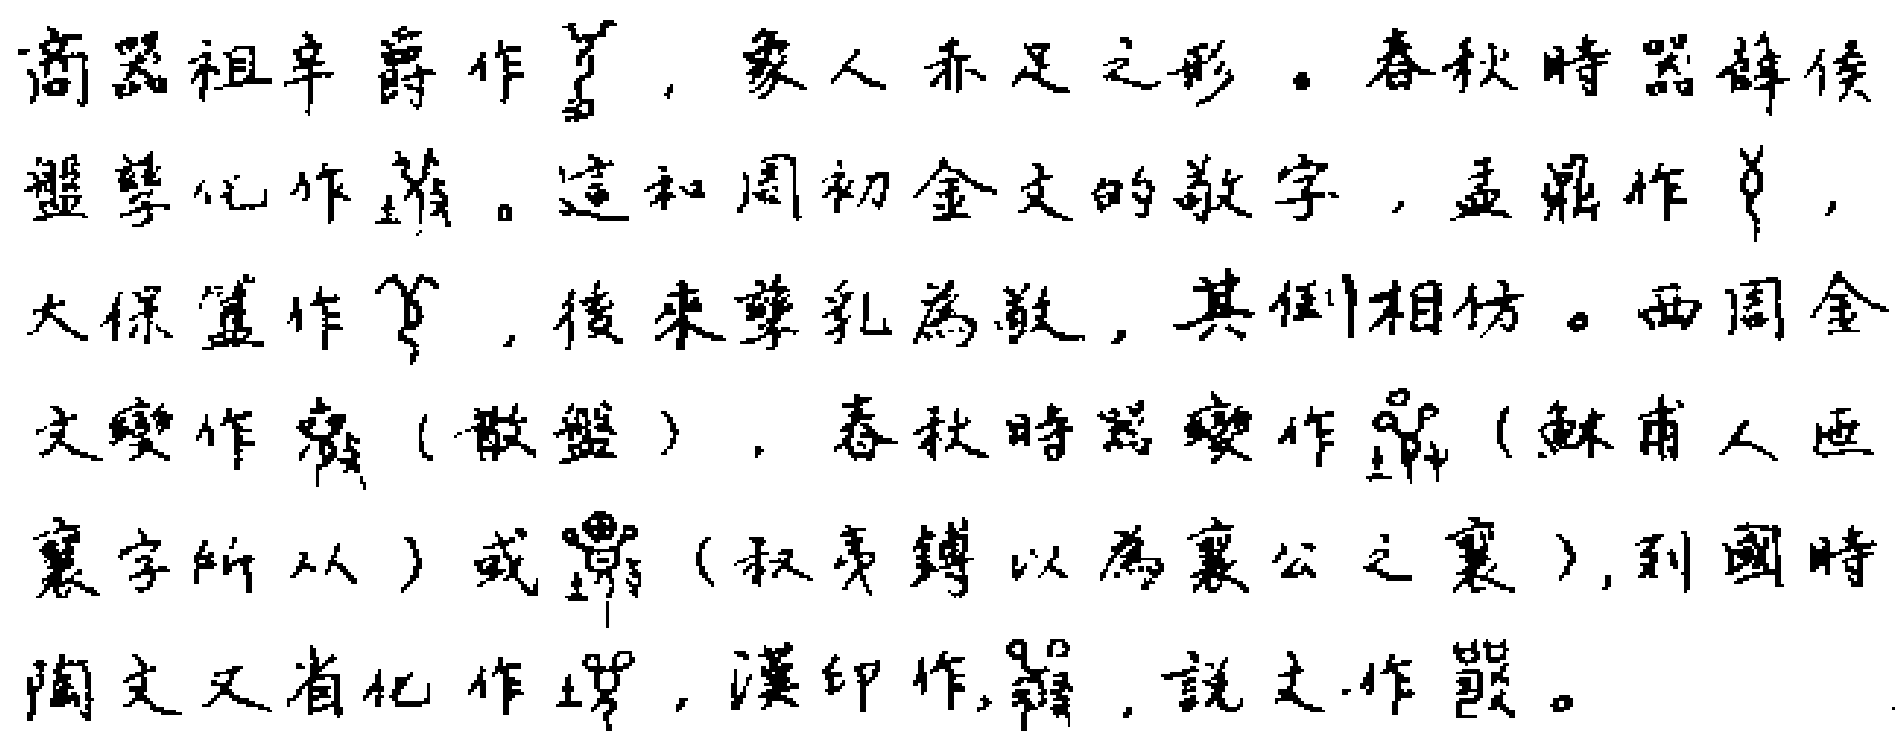 商器祖辛爵作，象人赤足之形。春秋時器薛侯
盤孳化作。這和周初金文的敬字，盂鼎作，
大保簋作，後來孳乳為敬，其例相仿。西周金
文變作（散盤），春秋時器變作（穌甫人匜
襄字所从）或（叔夷鎛以為襄公之襄），到國時
陶文又省化作，漢印作，說文作。